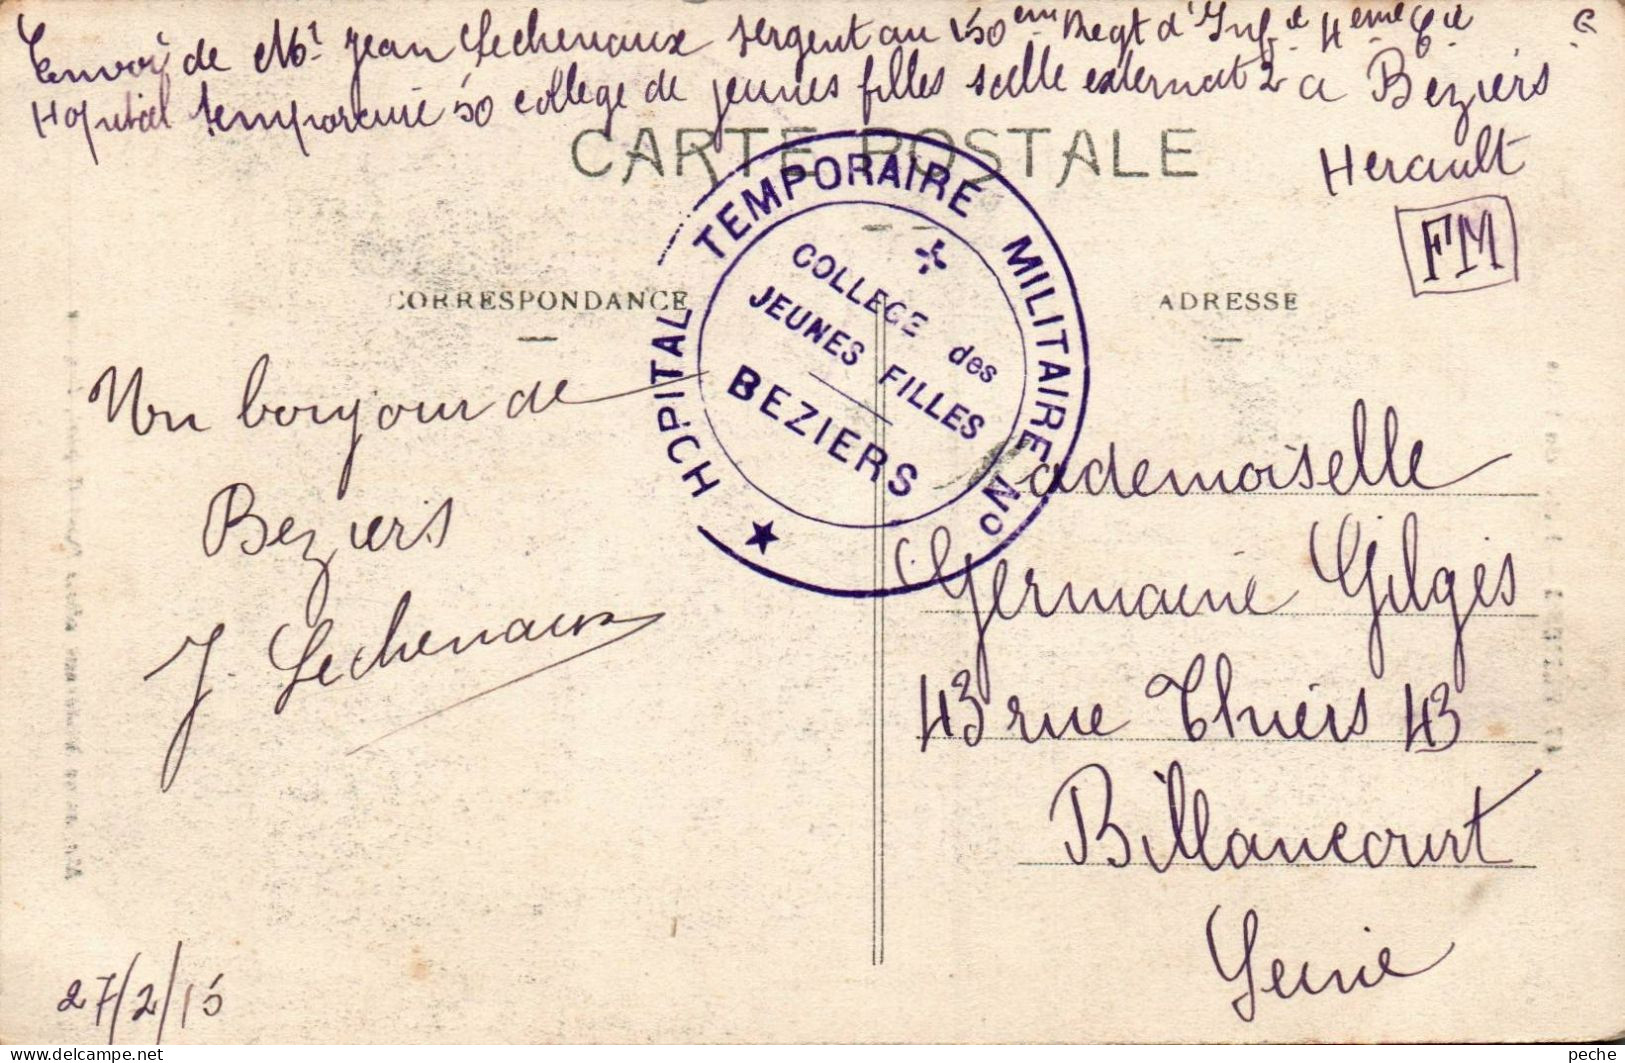 Envoi de Mr Jean Lechenaux sergent au 150eme Regt d'Infie 4eme Cie
Hopital temporaire 50 college de jeunes filles salle externat 2 a Beziers
Herault
CARTE POSTALE
FM
HOPITAL TEMPORAIRE MILITAIRE No
COLLEGE des
JEUNES FILLES
BEZIERS
CORRESPONDANCE
ADRESSE
Un bonjour de
Beziers
J. Lechenaux
27/2/15
Mademoiselle
Germaine Gilges
43 rue Thiers 43
Billancourt
Seine
peche